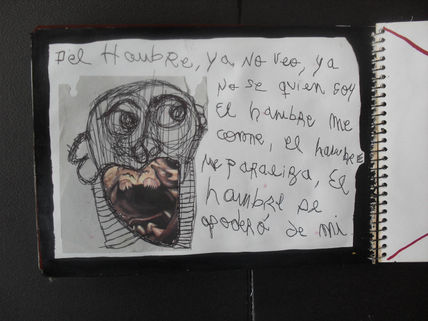 Del Hambre, ya no veo, ya
no se quien soy
El hambre me
come, el hambre
me paraliza, El
hambre se
apoderó de mi